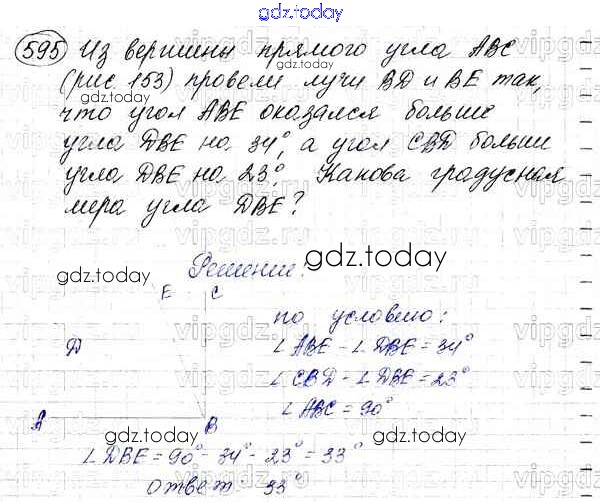 gdz.today
595 Из вершины прямого угла ABC
(рис. 153) провели лучи BD и BE так,
что угол ABE оказался больше
угла DBE на 34°, а угол CBD больше
угла DBE на 23°. Какова градусная
мера угла DBE?
Решение:
gdz.today
gdz.today
E C
по условию:
D
∠ABE - ∠DBE = 34°
∠CBD - ∠DBE = 23°
∠ABC = 90°
A B
gdz.today
gdz.today
∠DBE = 90° - 34° - 23° = 33°
Ответ: 33°
gdz.today